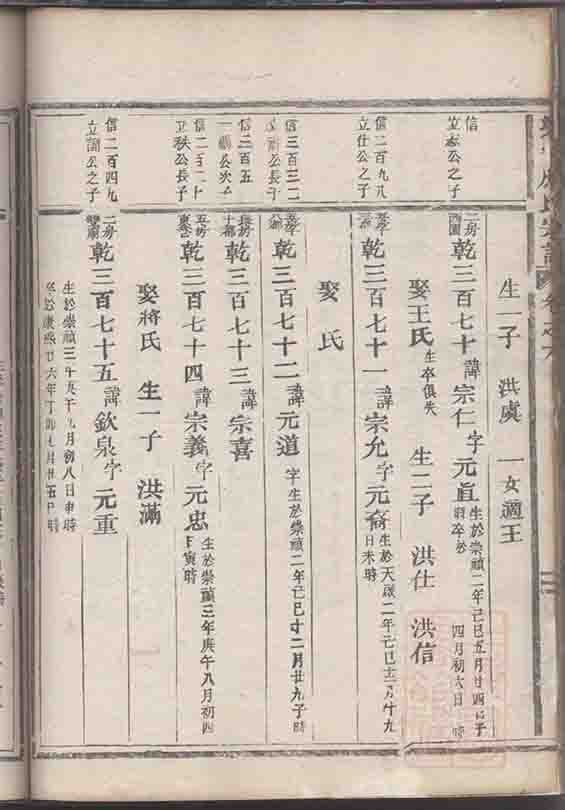 生一子 洪虞 一女適王
信
立 公之子
二房 西園 乾三百七十 諱宗仁 字元 生於崇禎二年己巳五月廿四 子 卒於 四月初六日 時
娶王氏 生卒俱失 生二子 洪仕 洪信
信二百九八
立仕公之子
乾三百七十一 諱宗允 字元裔 生於天啟二年 月十九日未時
娶 氏
信三百三二
公長子
乾三百七十二 諱元道 字 生於崇禎二年己巳十二月廿九子時
信三百五
公次子
乾三百七十三 諱宗喜
信二百
立秩公長子
五房 乾三百七十四 諱宗義 字元忠 生於崇禎三年庚午八月初四日寅時
娶蔣氏 生一子 洪滿
信二百四九
立 公之子
二房 乾三百七十五 諱欽泉 字元重
生於崇禎三年庚午九月初八日申時
卒於康熙廿六年丁卯七月廿五 時